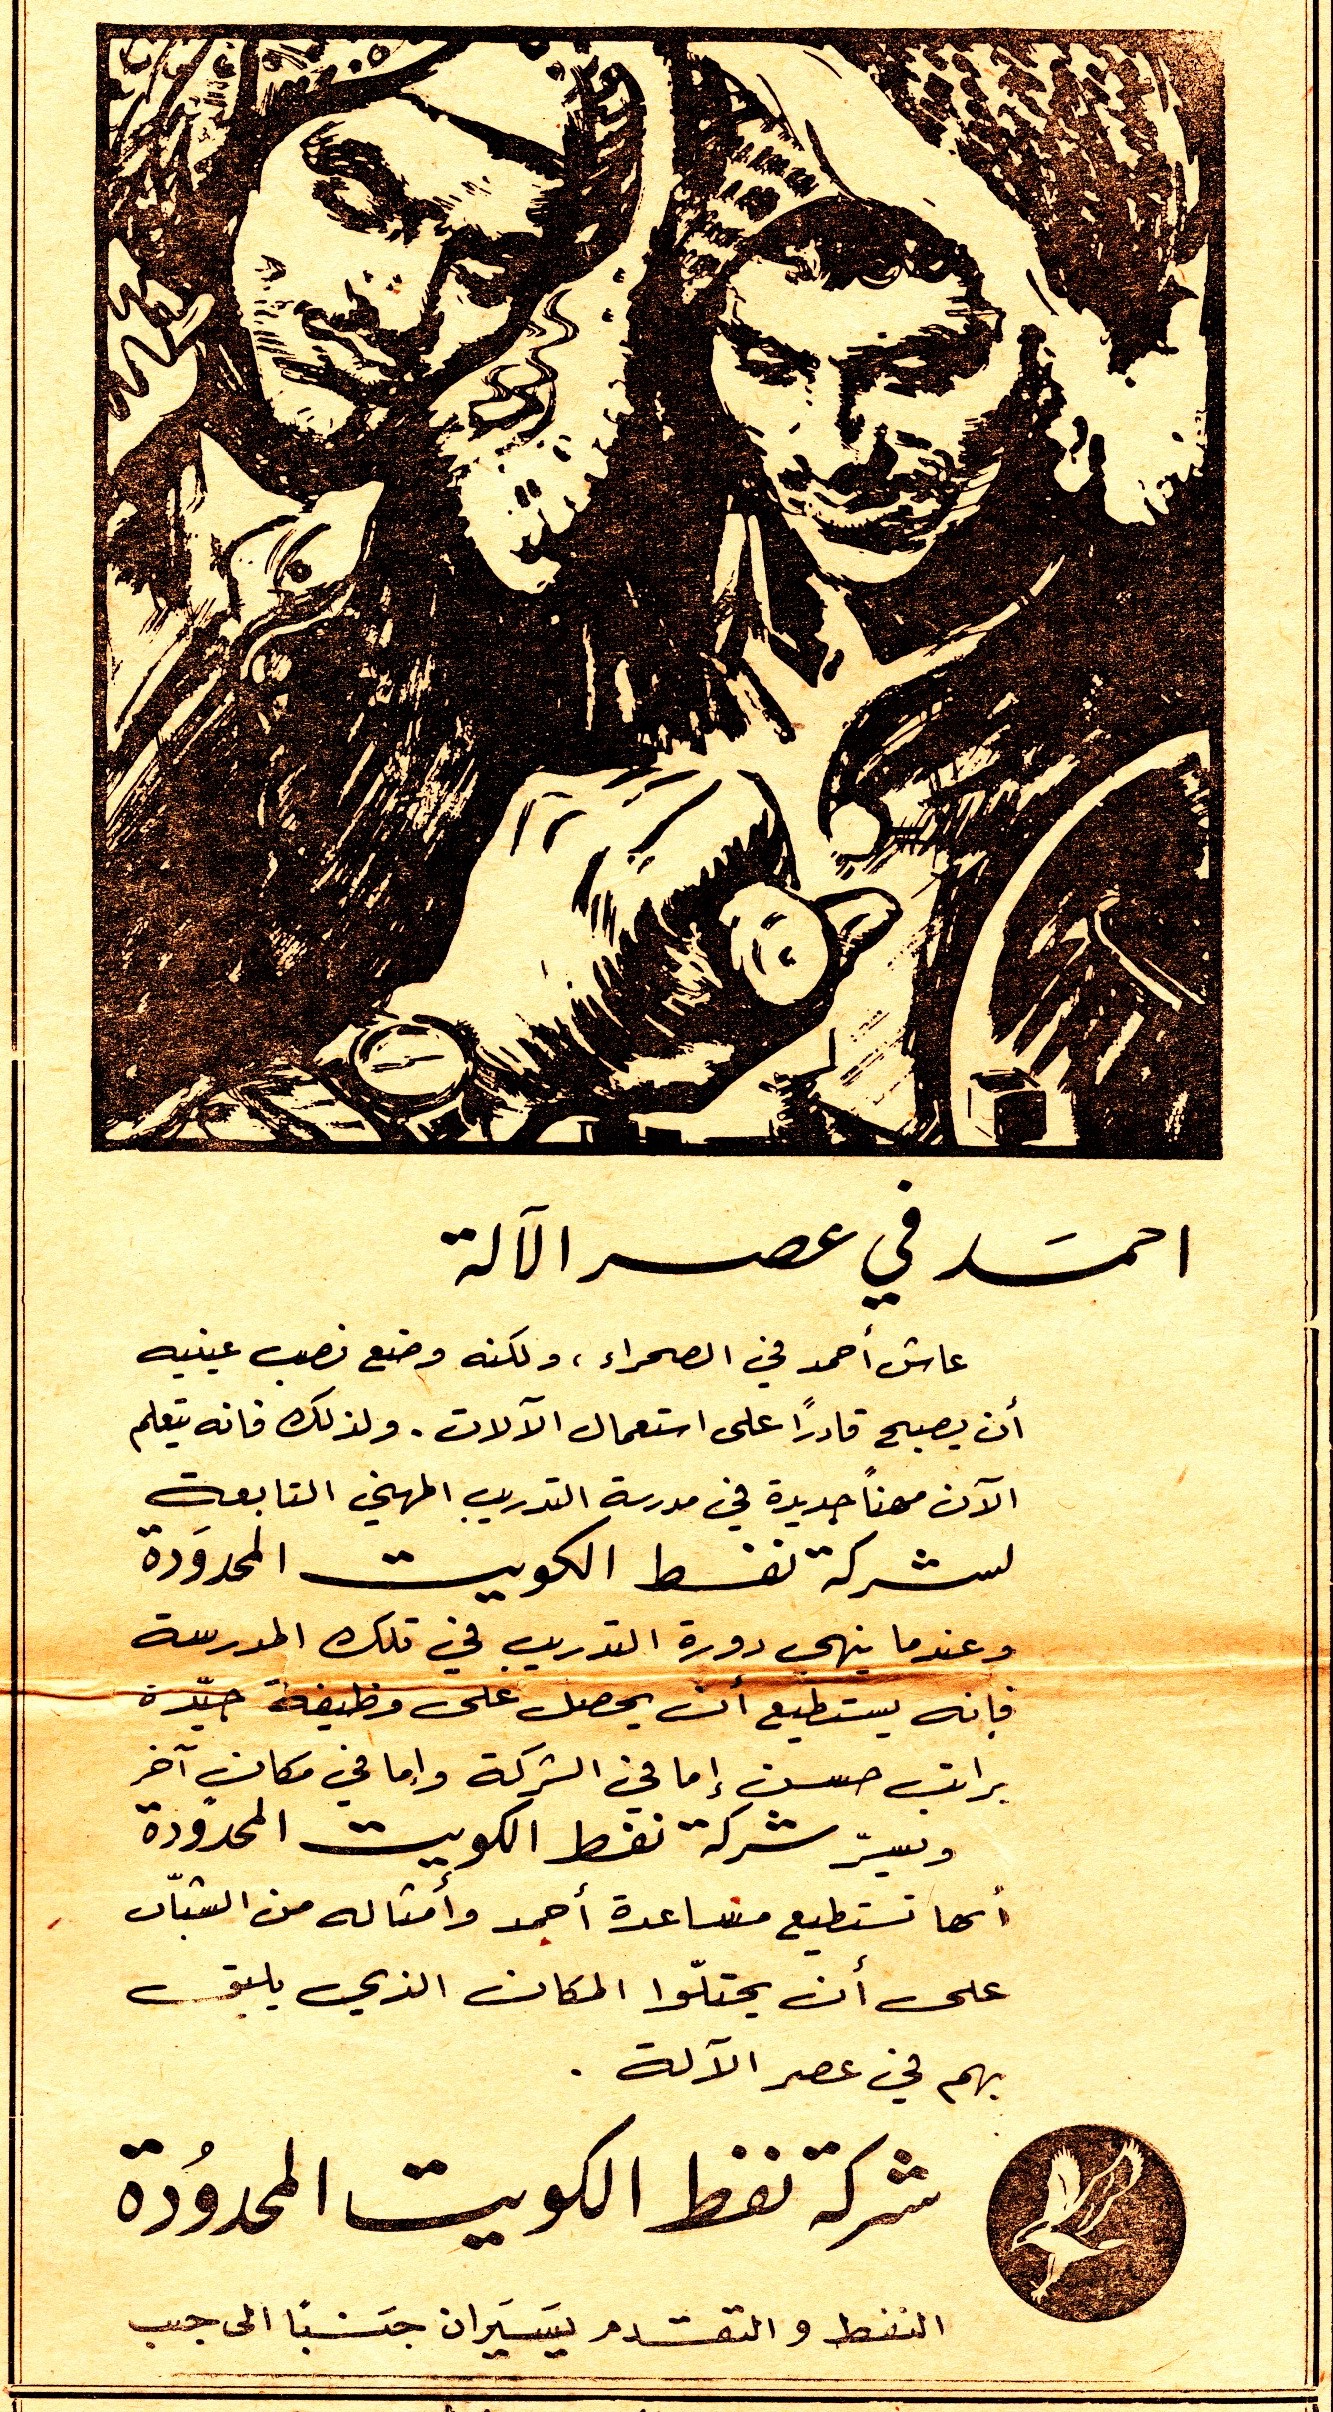 احمَد في عصر الآلة
عاش أحمد في الصحراء، ولكنه وضع نصب عينيه
أن يصبح قادرًا على استعمال الآلات. ولذلك فانه يتعلم
الآن مهنًا جديدة في مدرسة التدريب المهني التابعة
لشركة نفط الكويت المحدوَدة
وعندما ينهي دورة التدريب في تلك المدرسة
فإنه يستطيع أن يحصل على وظيفة جيّدة
براتب حسن إما في الشركة وإما في مكان آخر
ويسرّ شركة نفط الكويت المحدوُدة
أنها تستطيع مساعدة أحمد وأمثاله من الشبّان
على أن يحتلّوا المكان الذي يليق
بهم في عصر الآلة .
شركة نفط الكويت المحدوُدة
النفط و التقدم يَسَيَران جَنبًا الى جنب